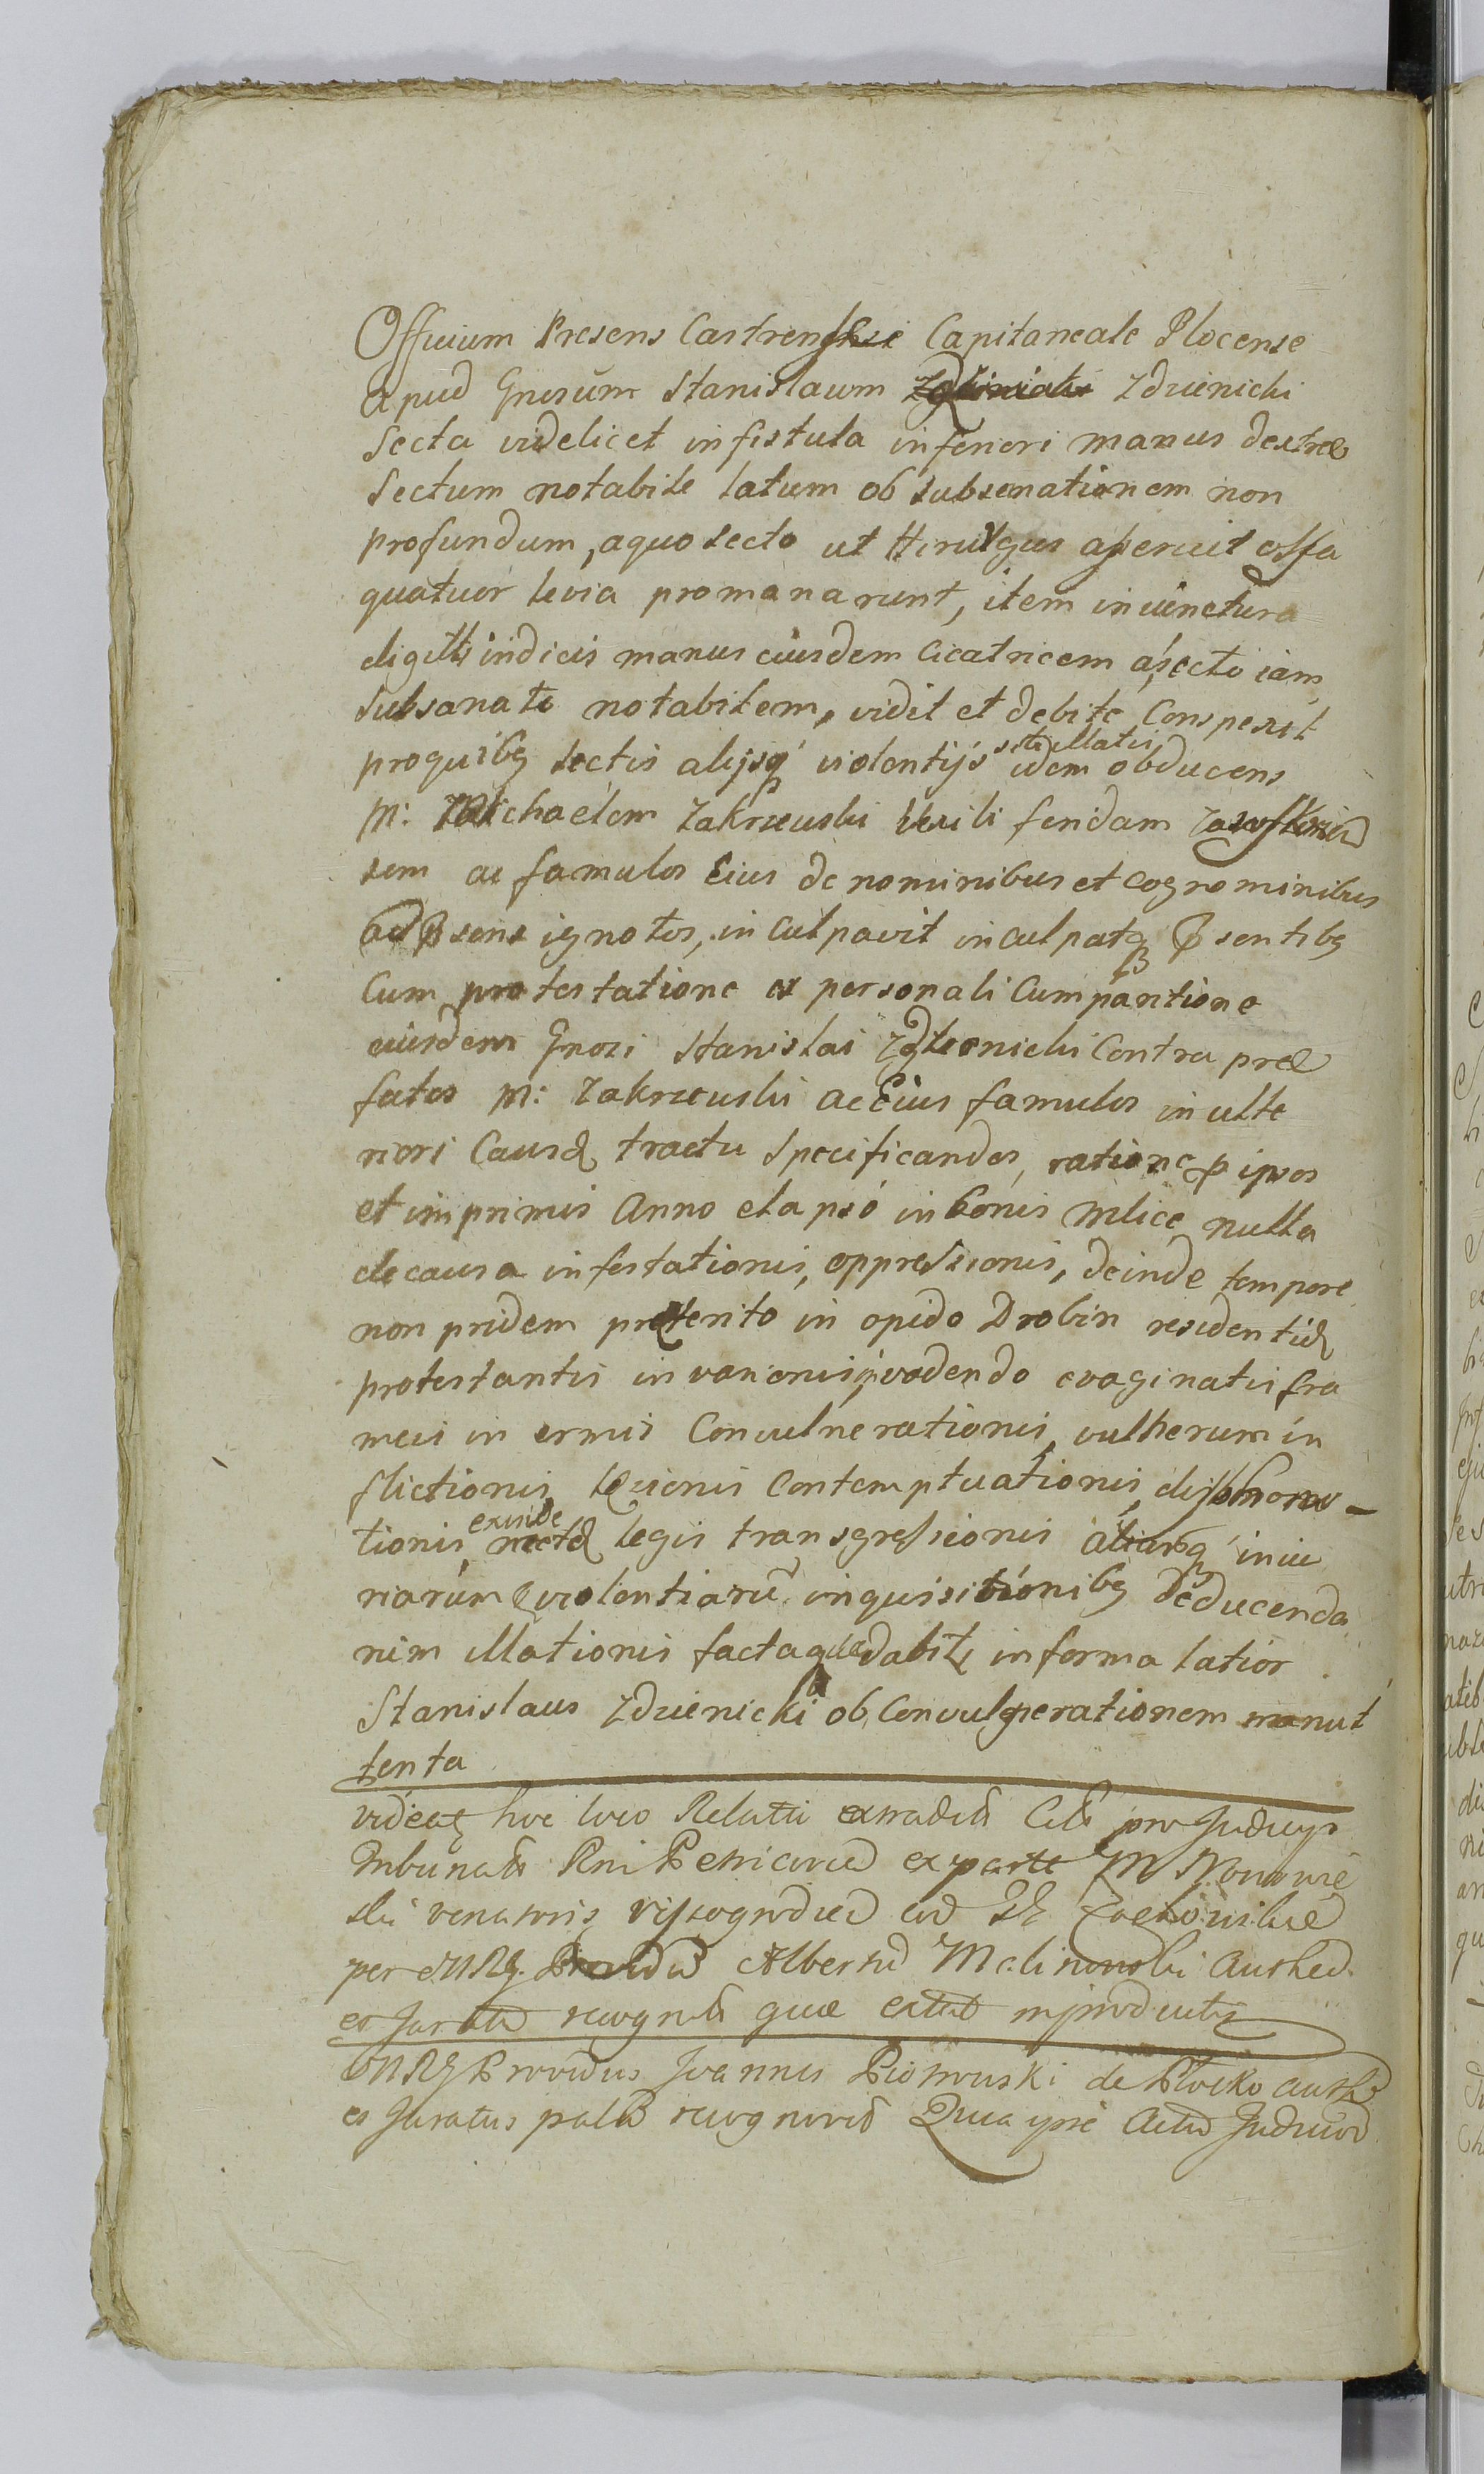 Officium Presens Castrense Capitaneale Plocense
Apud Gnosum Stanislaum Zdzienicki
secta videlicet in fistula inferiori manus dextræ
sectum notabile latum ob subsanationem non
profundum, a quo secto ut Hirurgus aperuit ossa
quatuor levia promanarunt, item in iunctura
digitti indicis manus eiusdem Cicatricem á secto iam
subsanato notabilem, vidit et debite Conspexit
pro quibg sectis alijsq́ violentijs sibi illatis idem obducens
M: Michaelem Zakrzewski Vexiliferidam
sem ac famulos Eius de nominibus et cognominibus
ad psens ignotos, inculpavit inculpatq psentibg
Cum protestatione ex personali Cumparitione
eiusdem Gnosi Stanislai Contra præ
fatos M: Zakrzewski ac Eius famulos in ulte
riori Causæ tractu specificandos, ratione p ipsos
et imprimis Anno elapsó in bonis Mlice nulla
de causa infestationis, oppressionis, deinde tempore
non pridem præterito in opido Drobin residentiæ
protestantis invadendo evaginatis fra
meis inermis Convulnerationis, vulnerum in
flictionis, læsionis Contemptuationis, dishonora-
tionis exinde legis transgressionis aliarq́ iniu
riarúm violentiarũ inquisitionibg deducenda
rum illationis facta in forma latior
Stanislaus Zdzienicki ob Convulnerationem manus
tenta
videatq hoc loco Relatio pro Judicijs
Tribunals Rni ex parte M
venatoris ad
per Albertũ Malinowski Authed
et Juratũ recognita quæ extat
Providus Joannes Piotrowski de Płocko
et Juratus palã recognovit Quia ipse Judicior